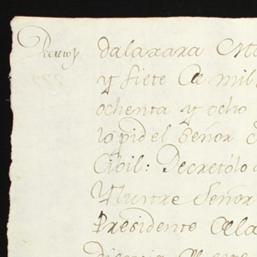 dalaxara Ma
y siete de mil
ochenta y ocho
lo pide el Señor
Cibil: Decretólo
Yllustre Señor
Presidente de la